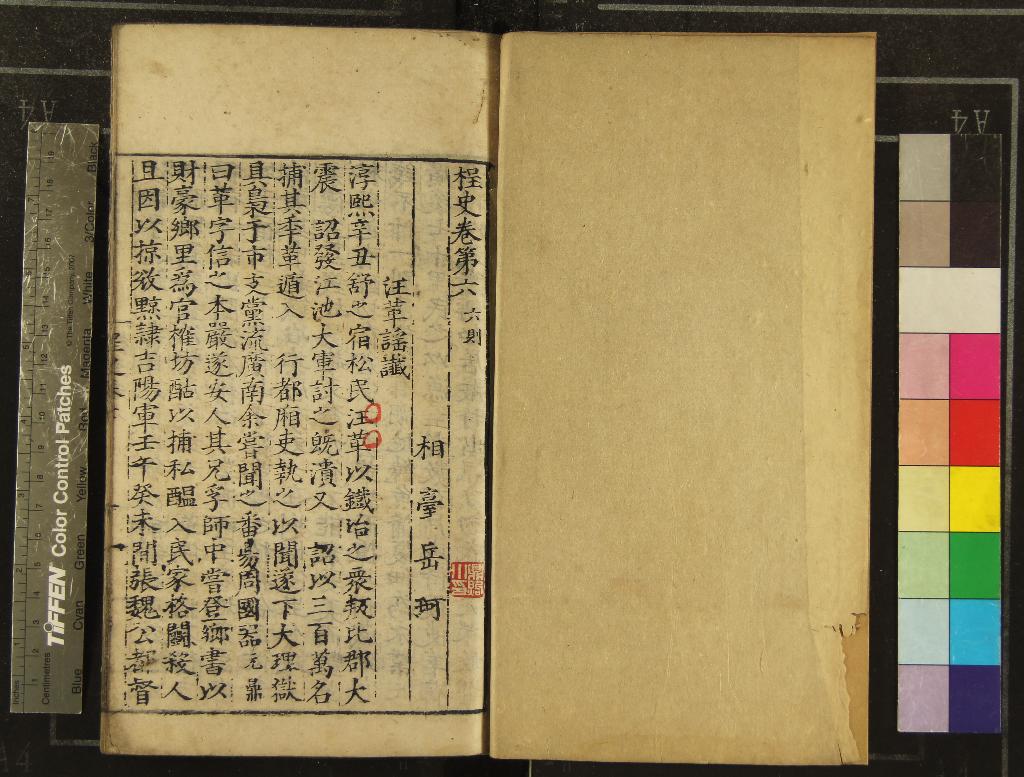 桯史卷第六 六則
相臺岳珂
汪革謠讖
淳熙辛丑舒之宿松民汪革以鐵冶之衆叛比郡大
震 詔發江池大軍討之旣潰又 詔以三百萬名
捕其年革遁入 行都廂吏執之以聞遂下大理獄
具梟于市支黨流廣南余嘗聞之番昜周國器元鼎
曰革字信之本嚴遂安人其兄孚師中嘗登鄉書以
財豪鄉里爲官榷坊酤以捕私醖入民家格鬬殺人
且因以掠敓黥隸吉陽軍壬午癸未間張魏公都督
TIFFEN Color Control Patches
© The Tiffen Company, 2007
Inches
Centimetres
Blue
Cyan
Green
Yellow
Red
Magenta
White
3/Color
Black
A4
A4
A4